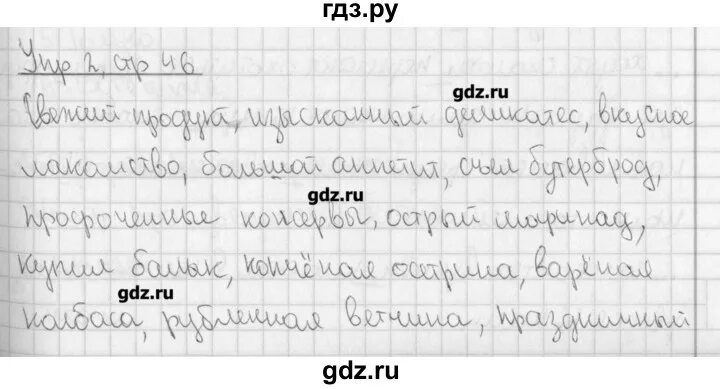 гдз.ру
Упр 2, стр 46
Свежий продукт, изысканный деликатес, вкусное
gdz.ru
лакомство, большой аппетит, съел бутерброд,
gdz.ru
просроченные консервы, острый маринад,
купил балык, копчёная осетрина, варёная
gdz.ru
колбаса, рубленная ветчина, праздничный
gdz.ru